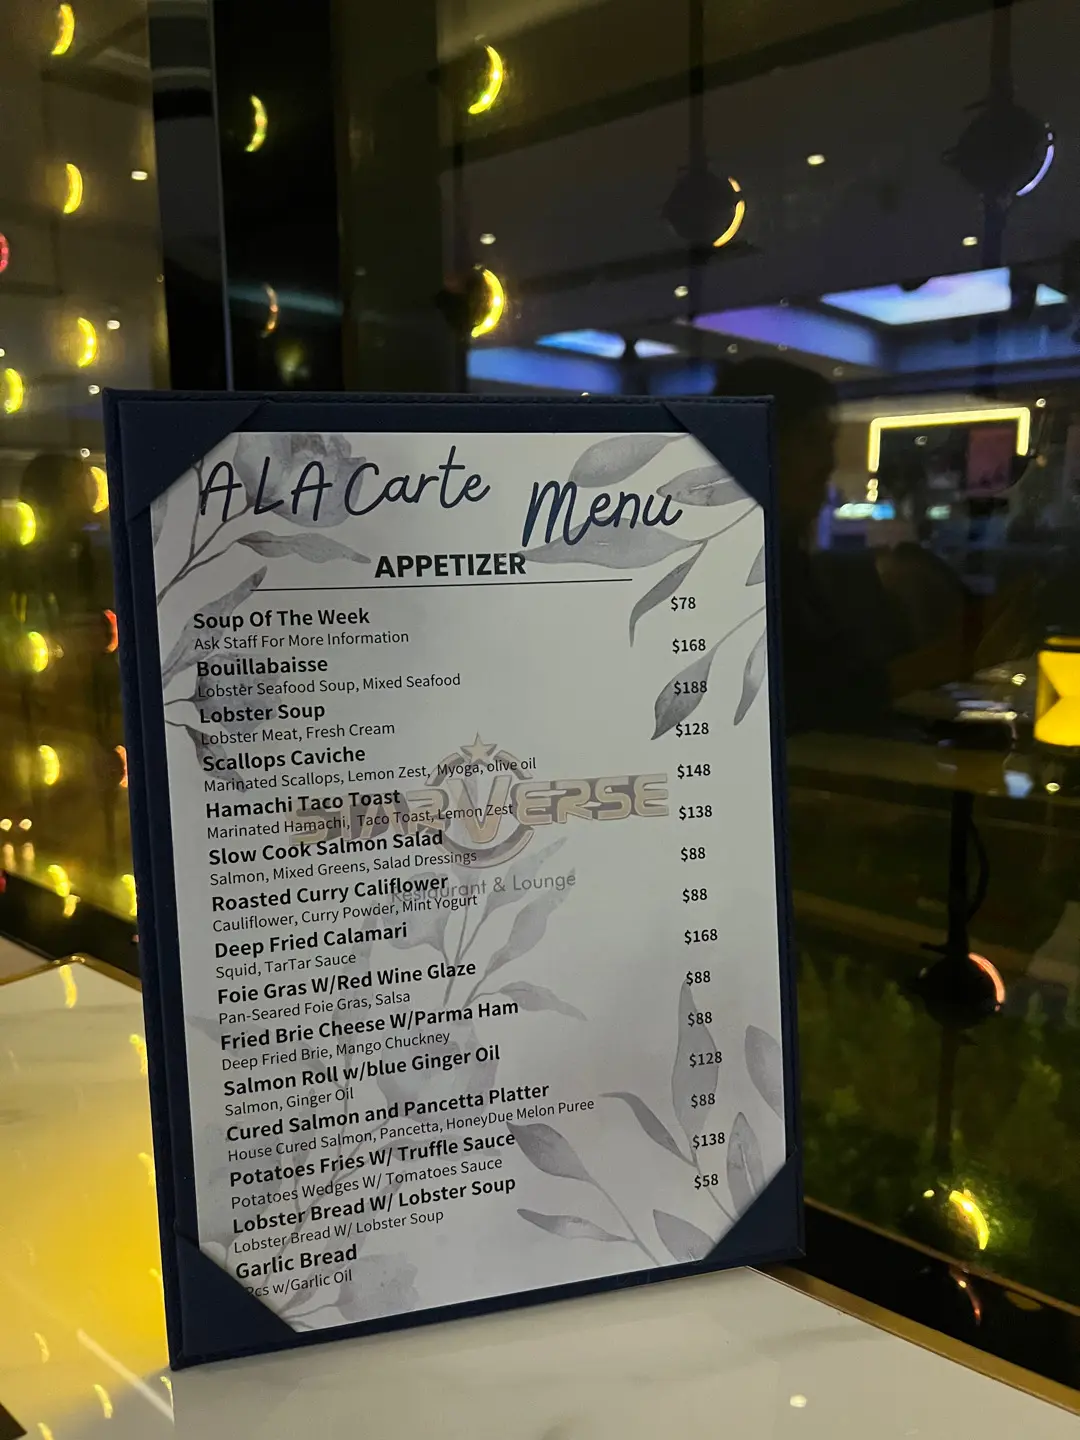 A LA Carte Menu
APPETIZER
Soup Of The Week $78
Ask Staff For More Information
Bouillabaisse $168
Lobster Seafood Soup, Mixed Seafood
Lobster Soup $188
Lobster Meat, Fresh Cream
Scallops Caviche $128
Marinated Scallops, Lemon Zest, Myoga, olive oil
Hamachi Taco Toast $148
Marinated Hamachi, Taco Toast, Lemon Zest
Slow Cook Salmon Salad $138
Salmon, Mixed Greens, Salad Dressings
Roasted Curry Califlower $88
Cauliflower, Curry Powder, Mint Yogurt
Deep Fried Calamari $88
Squid, TarTar Sauce
Foie Gras W/Red Wine Glaze $168
Pan-Seared Foie Gras, Salsa
Fried Brie Cheese W/Parma Ham $88
Deep Fried Brie, Mango Chuckney
Salmon Roll w/blue Ginger Oil $88
Salmon, Ginger Oil
Cured Salmon and Pancetta Platter $128
House Cured Salmon, Pancetta, HoneyDue Melon Puree
Potatoes Fries W/ Truffle Sauce $88
Potatoes Wedges W/ Tomatoes Sauce
Lobster Bread W/ Lobster Soup $138
Lobster Bread W/ Lobster Soup
Garlic Bread $58
Pcs w/Garlic Oil
STARVERSE
Restaurant & Lounge